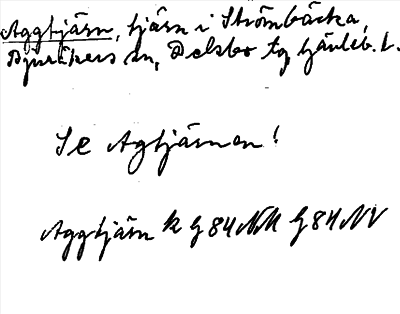 Aggtjärn, tjärn i Strömbäcka,
Bjuråkers sn, Delsbo tg Gävleb. l.
Se Agtjärnen!
Aggtjärn k G84NM G84NV